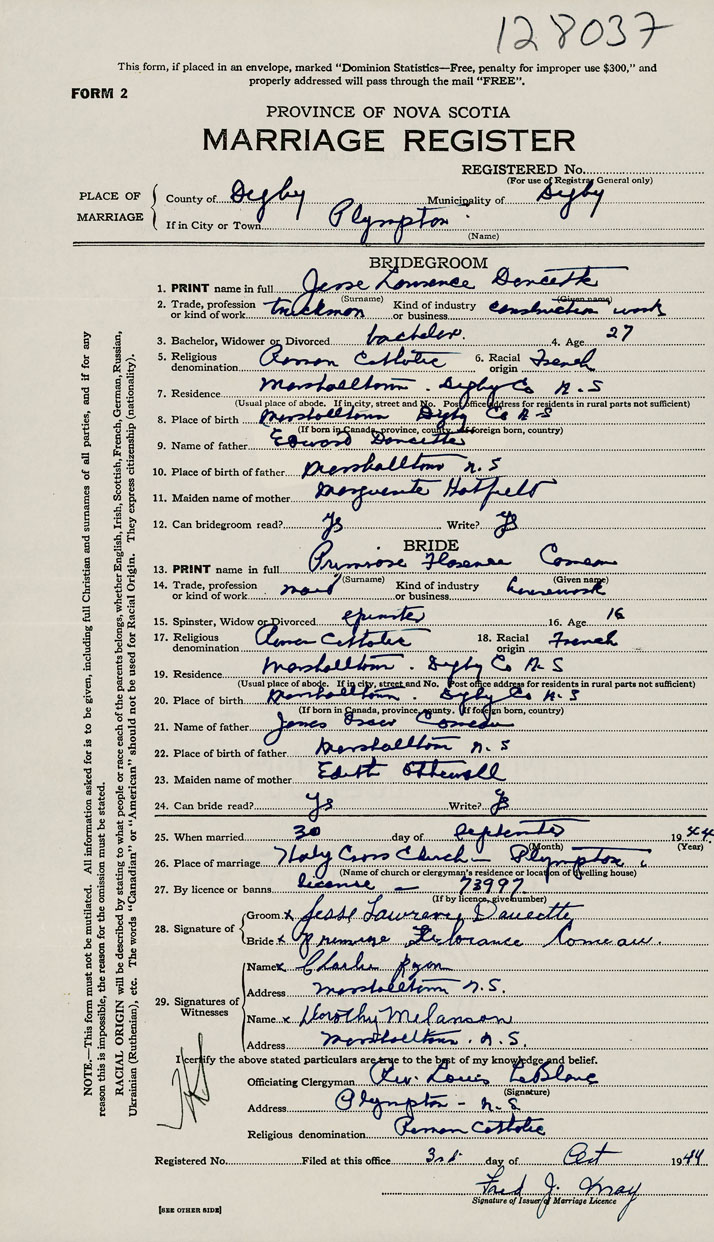 128037
This form, if placed in an envelope, marked “Dominion Statistics—Free, penalty for improper use $300,” and
properly addressed will pass through the mail “FREE”.
FORM 2
PROVINCE OF NOVA SCOTIA
MARRIAGE REGISTER
REGISTERED No.
(For use of Registrar General only)
PLACE OF MARRIAGE
County of Digby Municipality of Digby
If in City or Town Plympton
(Name)
BRIDEGROOM
1. PRINT name in full Jesse Lawrence Doucette
(Surname) (Given name)
2. Trade, profession or kind of work truckman Kind of industry or business construction work
3. Bachelor, Widower or Divorced bachelor. 4. Age 27
5. Religious denomination Roman Catholic 6. Racial origin French
7. Residence Marshalltown. Digby Co N.S
(Usual place of abode. If in city, street and No. Post office address for residents in rural parts not sufficient)
8. Place of birth Marshalltown Digby Co N-S
(If born in Canada, province, county. If foreign born, country)
9. Name of father Edward Doucette
10. Place of birth of father Marshalltown N.S
11. Maiden name of mother Marguerite Hatfield
12. Can bridegroom read? Yes Write? Yes
BRIDE
13. PRINT name in full Primrose Florence Comeau
(Surname) (Given name)
14. Trade, profession or kind of work maid Kind of industry or business housework
15. Spinster, Widow or Divorced spinster 16. Age 16
17. Religious denomination Roman Catholic 18. Racial origin French
19. Residence Marshalltown. Digby Co N-S
(Usual place of abode. If in city, street and No. Post office address for residents in rural parts not sufficient)
20. Place of birth Marshalltown. Digby Co N-S
(If born in Canada, province, county. If foreign born, country)
21. Name of father James Comeau
22. Place of birth of father Marshalltown N.S
23. Maiden name of mother Edith
24. Can bride read? Yes Write? Yes
25. When married 30 day of September 1944
(Month) (Year)
26. Place of marriage Holy Cross Church — Plympton
(Name of church or clergyman's residence or location of dwelling house)
27. By licence or banns license — 73997
(If by licence, give number)
28. Signature of
Groom x Jesse Lawrence Doucette
Bride x Primrose Comeau.
29. Signatures of Witnesses
Name x Charlie
Address Marshalltown N.S.
Name x Dorothy Melanson
Address Marshalltown. N.S.
I certify the above stated particulars are true to the best of my knowledge and belief.
Officiating Clergyman Rev. Louis LeBlanc
(Signature)
Address Plympton - N.S
Religious denomination Roman Catholic
Registered No. Filed at this office 3rd day of Oct 1944
Fred J.
Signature of Issuer of Marriage Licence
[SEE OTHER SIDE]
NOTE.—This form must not be mutilated. All information asked for is to be given, including full Christian and surnames of all parties, and if for any
reason this is impossible, the reason for the omission must be stated.
RACIAL ORIGIN will be described by stating to what people or race each of the parents belongs, whether English, Irish, Scottish, French, German, Russian,
Ukrainian (Ruthenian), etc. The words “Canadian” or “American” should not be used for Racial Origin. They express citizenship (nationality).